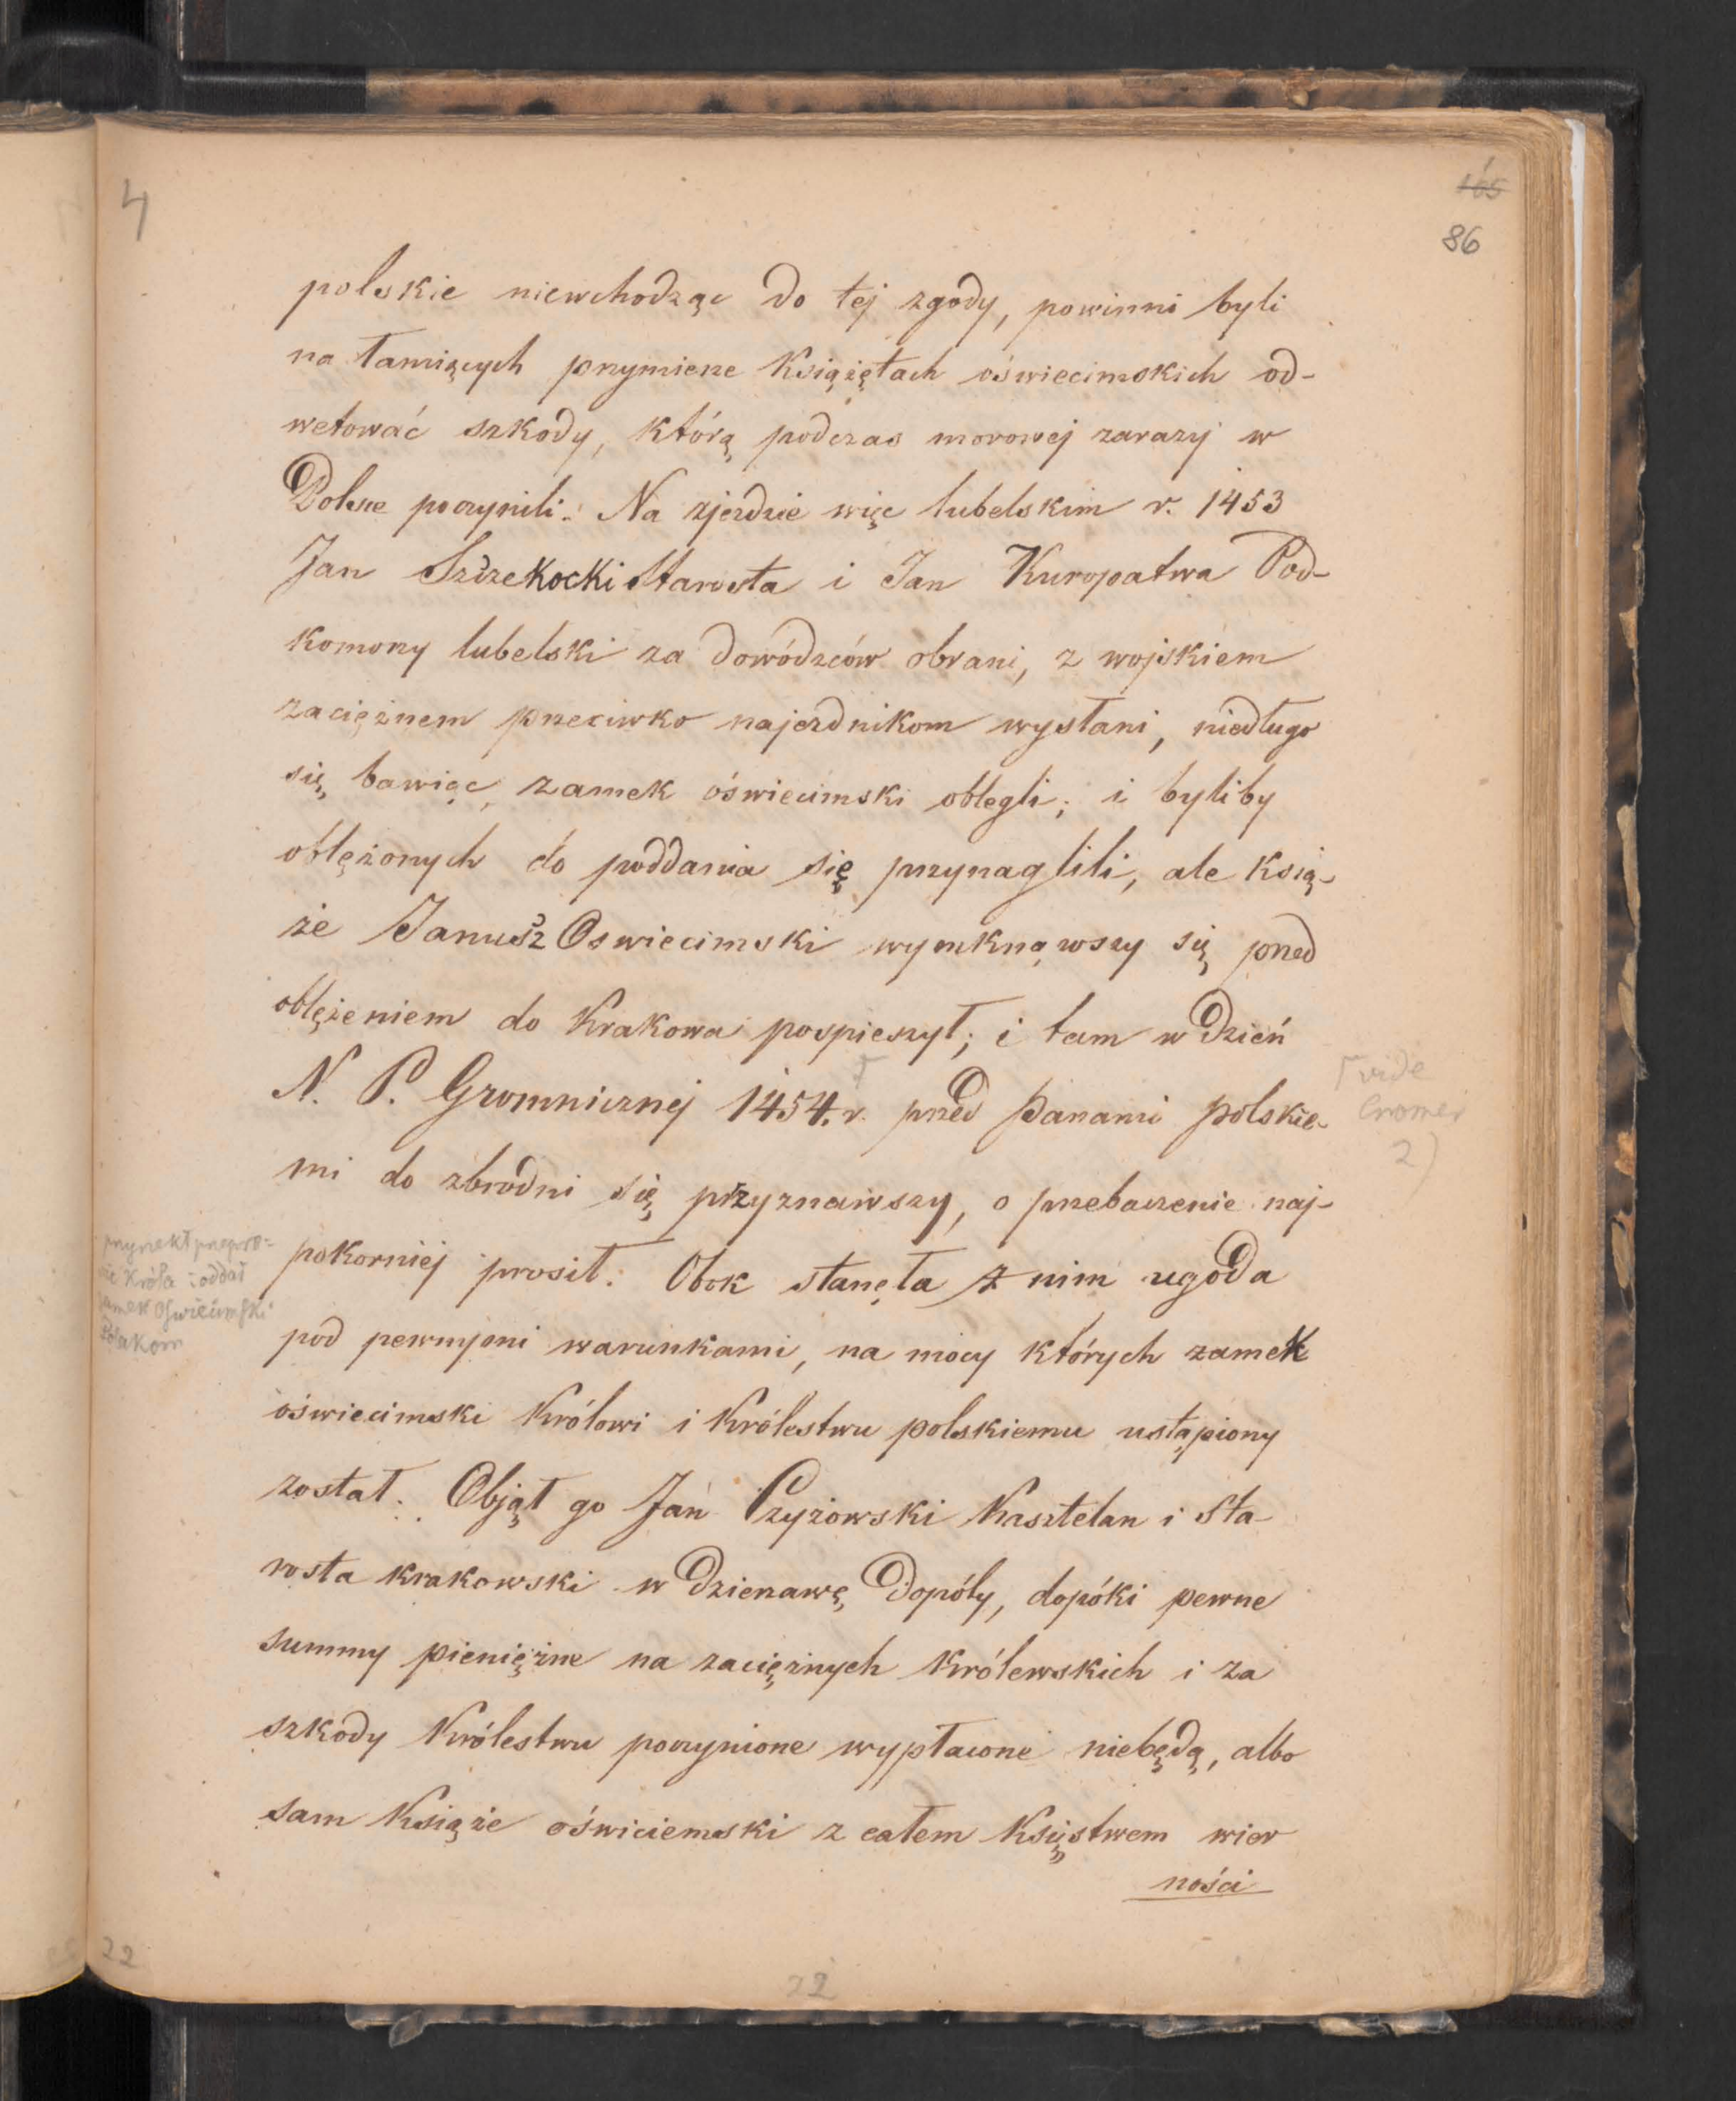 4
165
86
polskie niewchodząc do tej zgody, powinni byli
na łamiących przymierze Książętach oświecimskich od-
wetować szkody, którą podczas morowej zarazy w
Polsce poczynili. Na zjezdzie więc lubelskim r. 1453
Jan Szczekocki Starosta i Jan Kuropatwa Pod-
komorzy lubelski za dowódzców obrani, z wojskiem
zaciężnem przeciwko najezdnikom wysłani, niedługo
się bawiąc, zamek oświecimski oblegli; i byliby
oblężonych do poddania się przynaglili, ale Ksią-
że Janusz Oswiecimski wymknąwszy się przed
oblężeniem do Krakowa pospieszył; i tam w dzień
N. P. Gromnicznej 1454. r. przed Panami polskie-
vide
Cromer
2)
mi do zbrodni się przyznawszy, o przebaczenie naj-
pokorniej prosił. Obok stanęła z nim ugoda
Króla i oddał
zamek Oświecimski
Polakom
pod pewnymi warunkami, na mocy których zamek
oświecimski Królowi i Królestwu polskiemu ustąpiony
został. Objął go Jan Czyżowski Kasztelan i Sta-
rosta krakowski w dzierzawę dopóty, dopóki pewne
summy pieniężne na zaciężnych Królewskich i za
szkody Królestwu poczynione wypłacone niebędą, albo
sam Książe oświciemski z całem Księstwem wier
ności
22
22